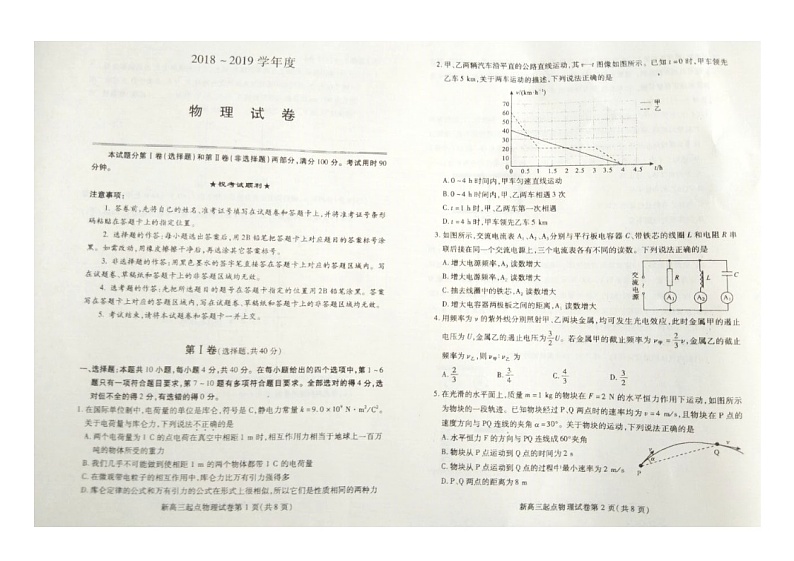 2018～2019学年度
物 理 试 卷
本试题分第Ⅰ卷(选择题)和第Ⅱ卷(非选择题)两部分,满分100分。考试用时90
分钟。
★祝考试顺利★
注意事项:
1. 答卷前,先将自己的姓名、准考证号填写在试题卷和答题卡上,并将准考证号条形
码粘贴在答题卡上的指定位置。
2. 选择题的作答:每小题选出答案后,用2B铅笔把答题卡上对应题目的答案标号涂
黑。如需改动,用橡皮擦擦干净后,再选涂其它答案标号。
3. 非选择题的作答:用黑色墨水的签字笔直接答在答题卡上对应的答题区域内。写
在试题卷、草稿纸和答题卡上的非答题区域均无效。
4. 选考题的作答:先把所选题目的题号在答题卡指定的位置用2B铅笔涂黑。答案
写在答题卡上对应的答题区域内,写在试题卷、草稿纸和答题卡上的非答题区域均无效。
5. 考试结束,请将本试题卷和答题卡一并上交。
第Ⅰ卷(选择题,共40分)
一、选择题:本题共10小题,每小题4分,共40分。在每小题给出的四个选项中,第1~6
题只有一项符合题目要求,第7~10题有多项符合题目要求。全部选对的得4分,选
对但不全的得2分,有选错的得0分。
1. 在国际单位制中,电荷量的单位是库仑,符号是C,静电力常量k=9.0×10⁹ N·m²/C²。
关于电荷量与库仑力,下列说法不正确的是
A. 两个电荷量为1 C的点电荷在真空中相距1 m时,相互作用力相当于地球上一百万
吨的物体所受的重力
B. 我们几乎不可能做到使相距1 m的两个物体都带1 C的电荷量
C. 在微观带电粒子的相互作用中,库仑力比万有引力强得多
D. 库仑定律的公式和万有引力的公式在形式上很相似,所以它们是性质相同的两种力
新高三起点物理试卷第1页(共8页)
2. 甲、乙两辆汽车沿平直的公路直线运动,其v-t图像如图所示。已知t=0时,甲车领先
乙车5 km,关于两车运动的描述,下列说法正确的是
v/(km·h⁻¹)
甲
乙
70
60
50
40
30
20
10
0 0.5 1 1.5 2 2.5 3 3.5 4 4.5 t/h
A. 0~4 h时间内,甲车匀速直线运动
B. 0~4 h时间内,甲、乙两车相遇3次
C. t=1 h时,甲、乙两车第一次相遇
D. t=4 h时,甲车领先乙车5 km
3. 如图所示,交流电流表A₁、A₂、A₃分别与平行板电容器C、带铁芯的线圈L和电阻R串
联后接在同一个交流电源上,三个电流表各有不同的读数。下列说法正确的是
A. 增大电源频率,A₃读数增大
B. 增大电源频率,A₂读数增大
C. 抽去线圈中的铁芯,A₂读数增大
D. 增大电容器两极板之间的距离,A₁读数增大
交流电源
R L C
A₁ A₂ A₃
4. 用频率为ν的紫外线分别照射甲、乙两块金属,均可发生光电效应,此时金属甲的遏止
电压为U,金属乙的遏止电压为3/2U。若金属甲的截止频率为ν甲=2/3ν,金属乙的截止
频率为ν乙,则ν甲:ν乙为
A. 2/3 B. 3/4 C. 4/3 D. 3/2
5. 在光滑的水平面上,质量m=1 kg的物块在F=2 N的水平恒力作用下运动,如图所示
为物块的一段轨迹。已知物块经过P、Q两点时的速率均为v=4 m/s,且物块在P点的
速度方向与PQ连线的夹角α=30°。关于物块的运动,下列说法正确的是
A. 水平恒力F的方向与PQ连线成60°夹角
B. 物块从P点运动到Q点的时间为2 s
C. 物块从P点运动到Q点的过程中最小速率为2 m/s
D. P、Q两点的距离为8 m
v α P Q v
新高三起点物理试卷第2页(共8页)